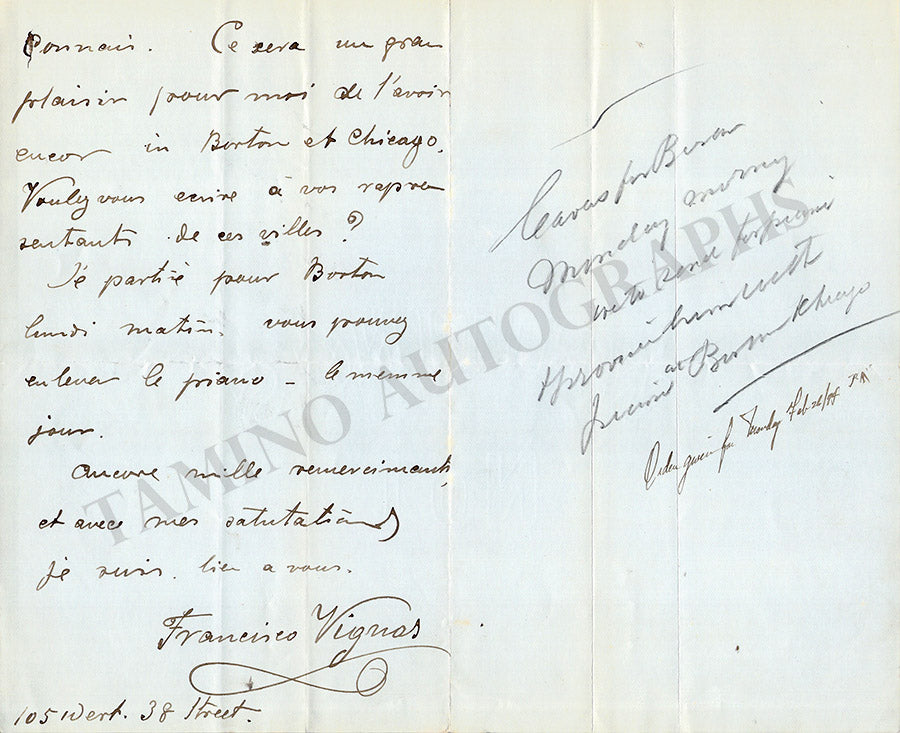 connais. Ce sera un gran
plaisir pour moi de l'avoir
encor in Boston et Chicago.
Voulez vous ecrire à vos repre
sentants de ces villes?
Je partiré pour Boston
lundi matin. vous pouvez
enlever le piano – le memme
jour.
Ancore mille remerciments,
et avec mes salutations
je suis. bien a vous.
Francisco Vignas
105 West. 38 Street.
Leaves for Boston
Monday morning
we to send for piano
&
Boston & Chicago
Order given for Monday Feb 26/94
TAMINO AUTOGRAPHS